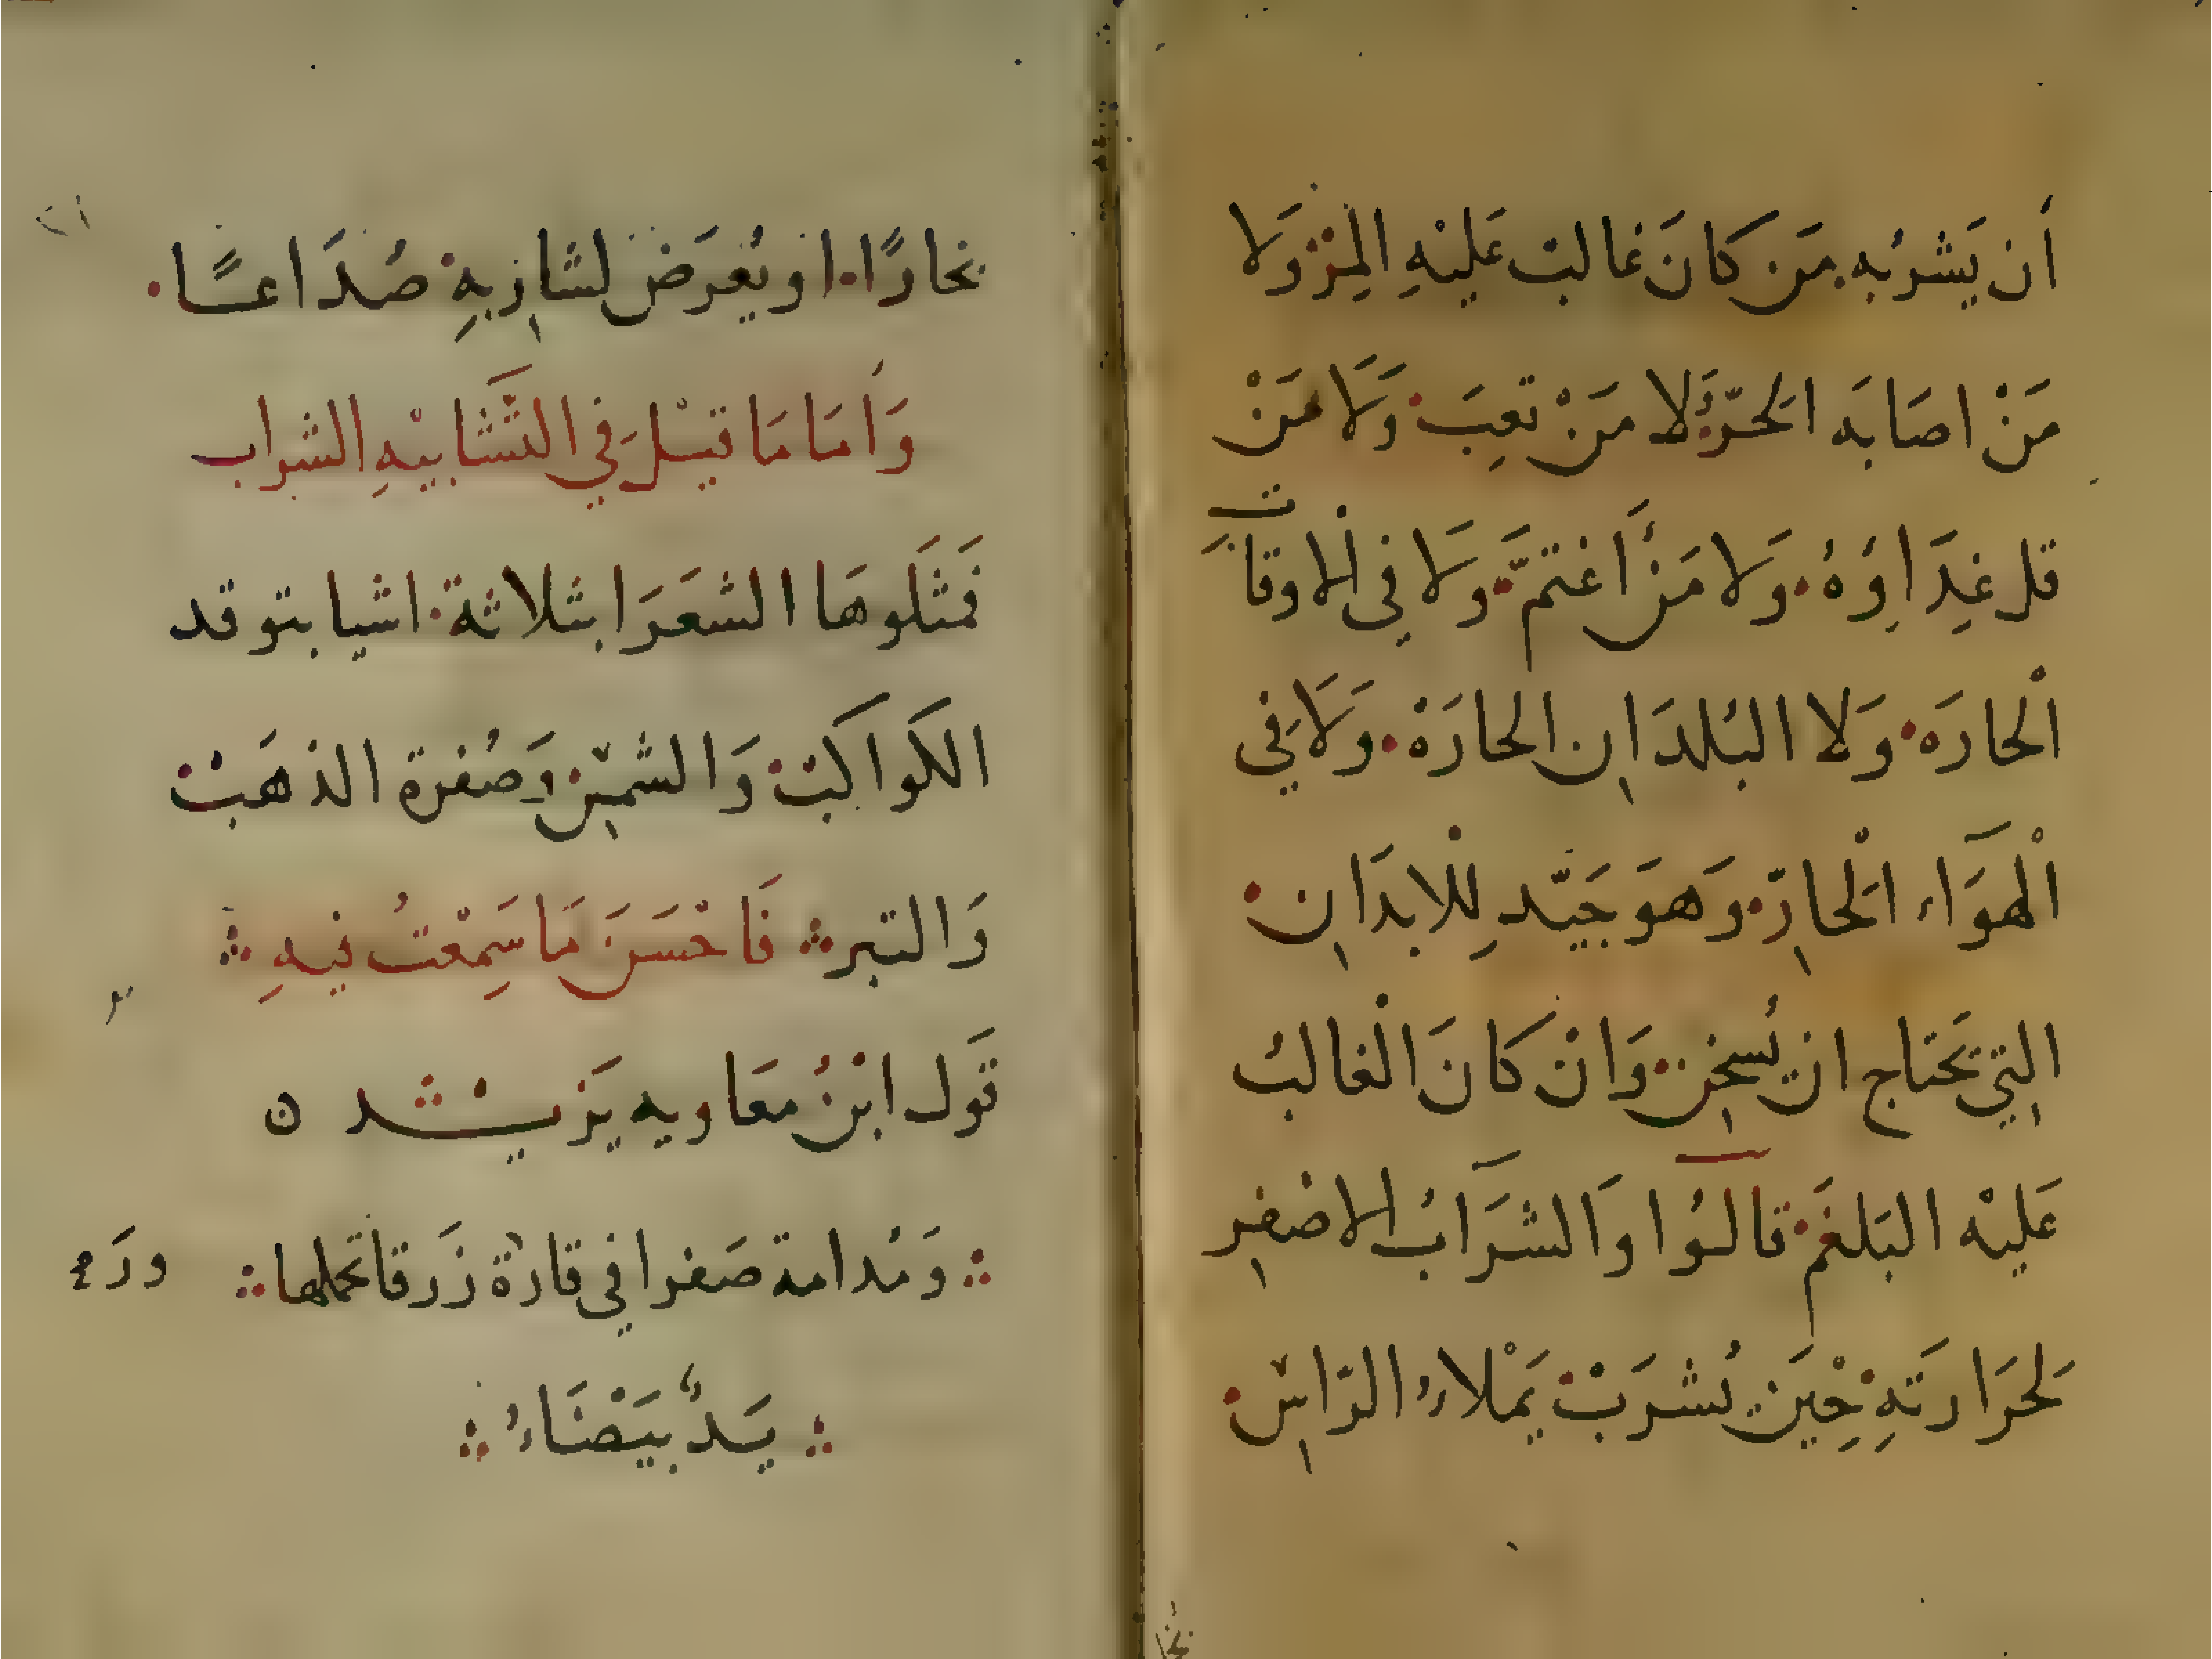 أن يَشربُه مَن كانَ غالب عَليْهِ المِز وَلا
مَنْ اصَابَه الحَرّ وَلا مَنْ تعِبَ وَلَا مَنْ
قل غِدَاوُهُ وَلا مَنْ أغتمّ وَلَا فِى الاوقات
الْحارَه وَلا البُلدَان الحارَهْ وَلَا فِي
الْهوَاء الحارّ وَهوَ جَيّد لِلْابدَان
التِي تَحتاج ان يُسخن وَانْ كانَ الْغالبُ
عَليْه البَلغَم قالُوا وَالشرَابُ الاصْفر
لَحرَارتَهِ حِيَن يُشرَبْ يَمْلاءُ الرّاسْ
بخارًا او يُعرَض لشاربهِ صُدَاعًا
وَأمَا مَا قيْلَ في التّشَابيْهِ الشراب
فَمثَلوهَا الشعَرَا بثلاثة اشيا بتوقد
الكَواكبْ وَالشمس وَصُفرة الذهَبْ
وَالتبر فَاحْسَنَ مَا سَمِعْتُ فيهِ
قَول ابْنُ معَاويه يَزيْد ن
وَمُدامة صَفرا في قارُة زَرقا تحملها
يَدٌ بيَضْنَاءُ
بخا